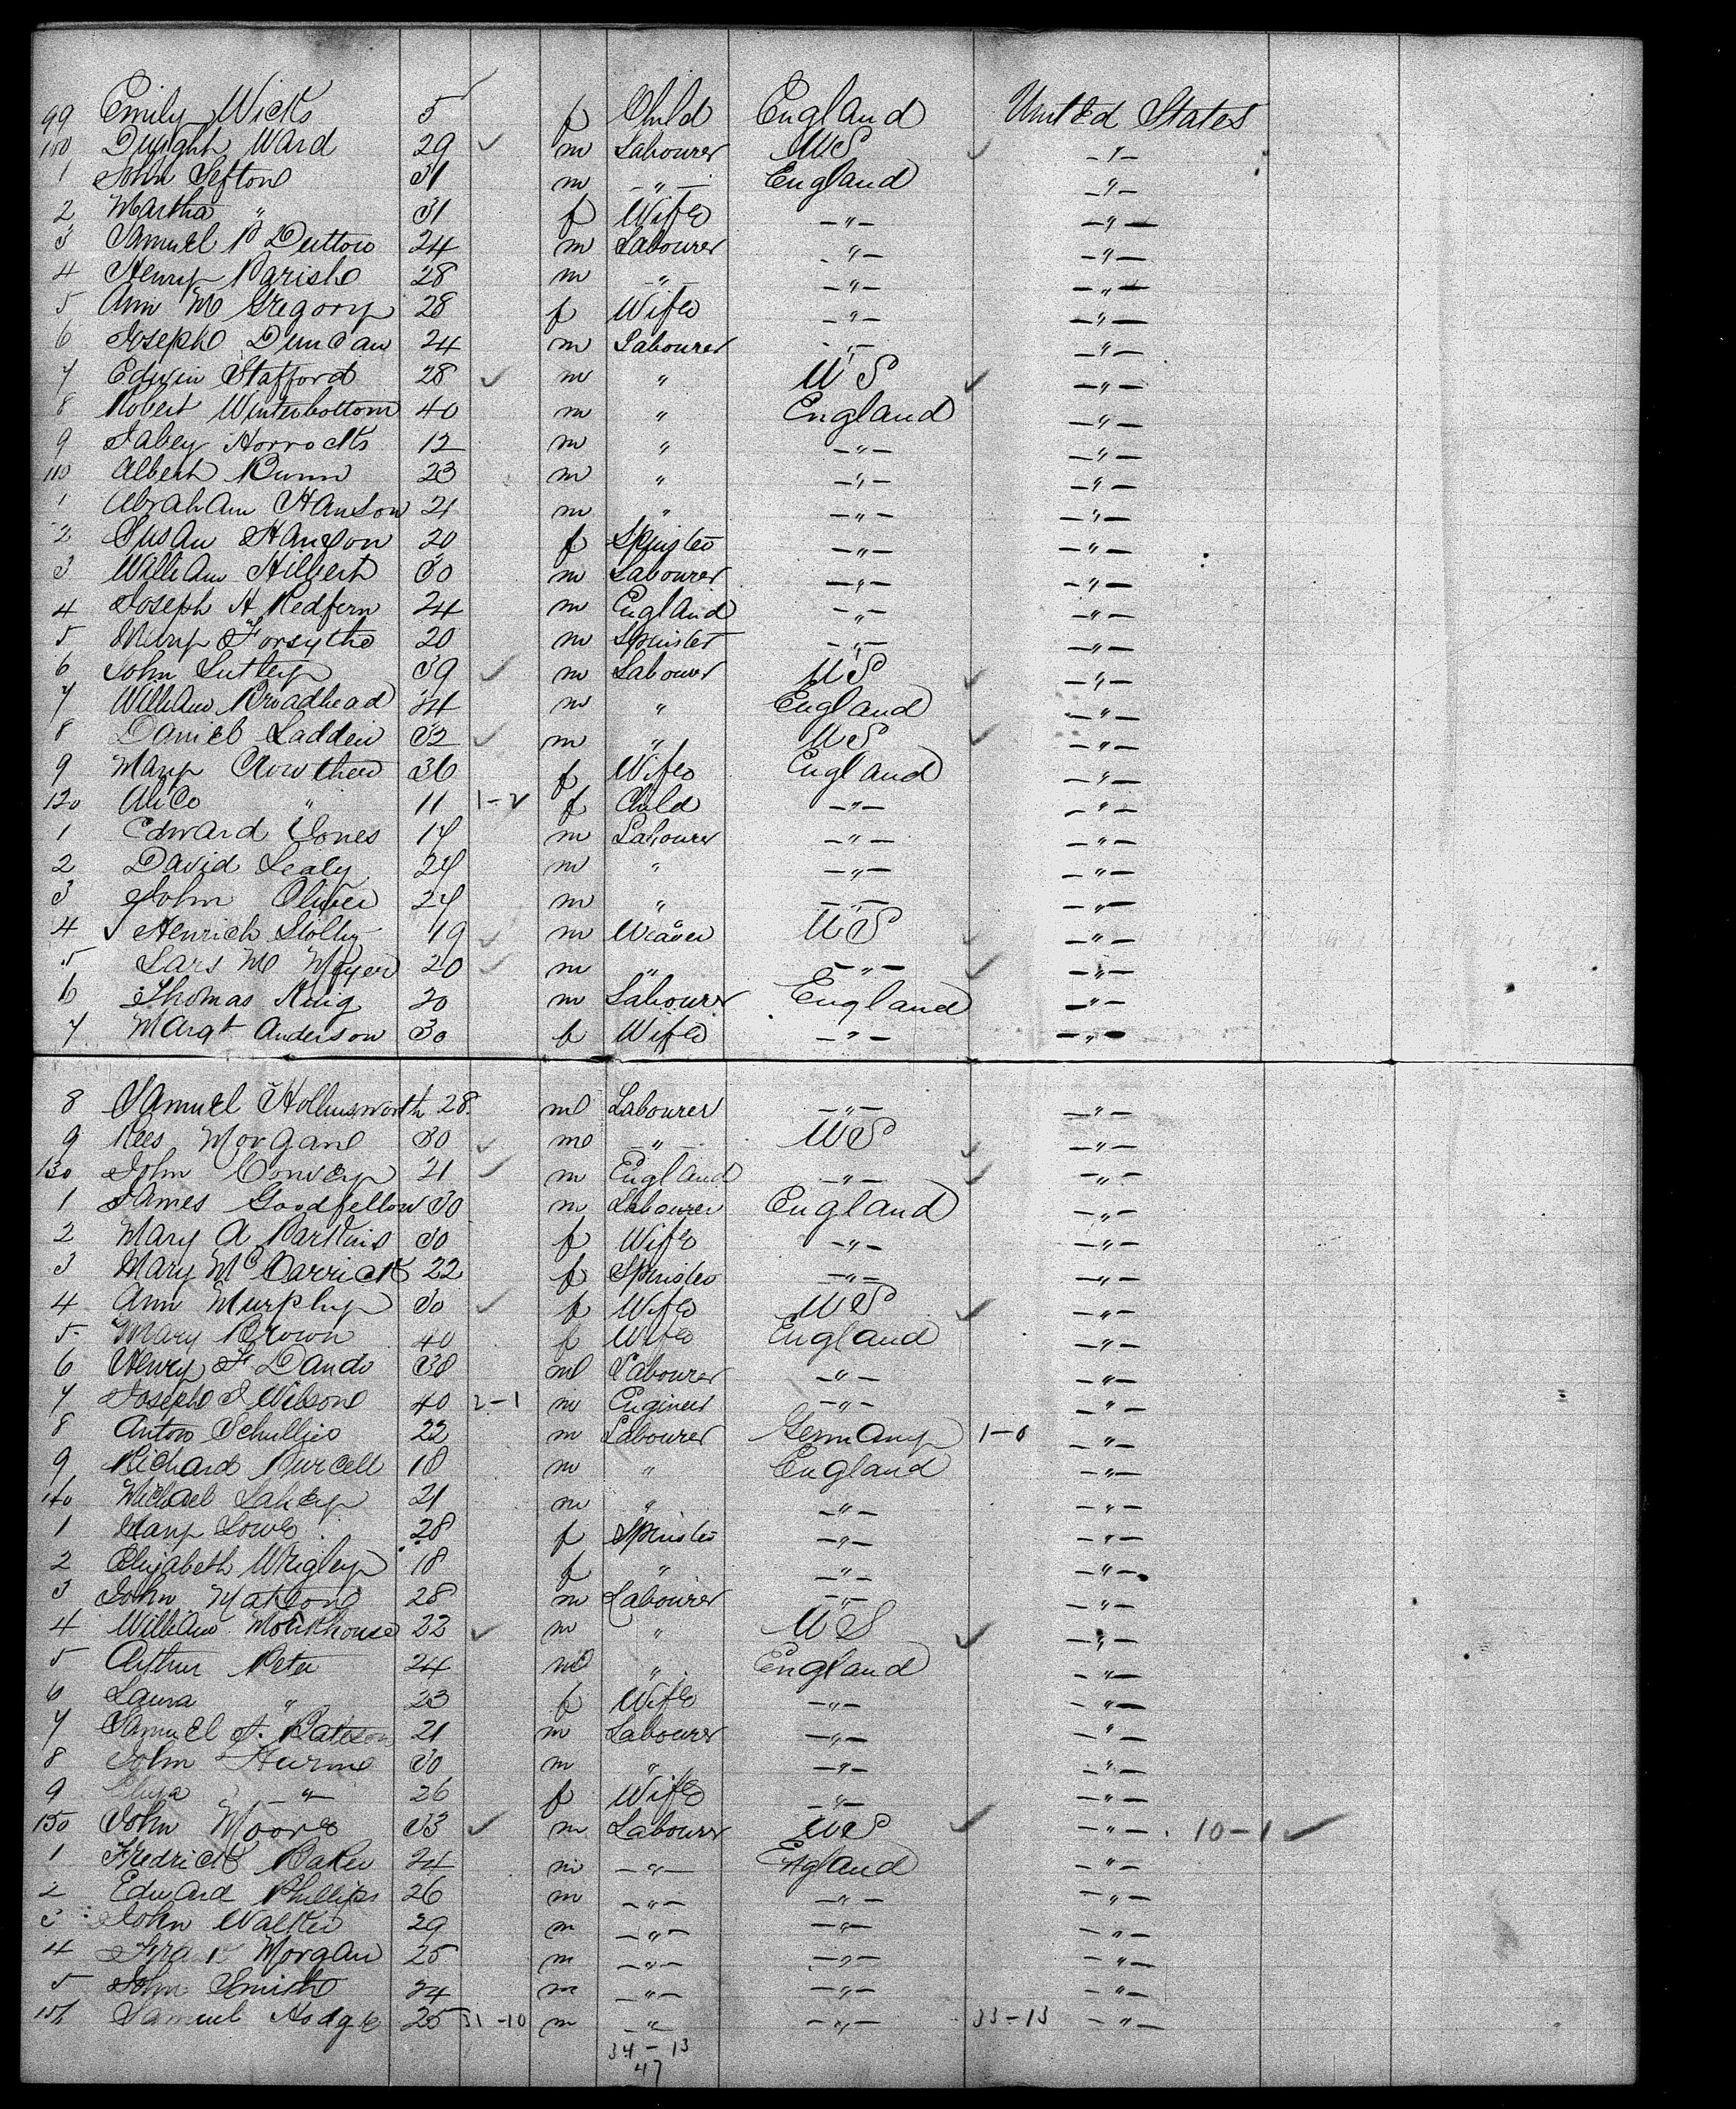 99 Emily Wicks 5 f Child England United States
100 Dwight Ward 29 ✓ m Labourer US ✓ -"-
1 John Sefton 31 m -"- England -"-
2 Martha " 31 f Wife -"- -"-
3 Samuel P Dutton 24 m Labourer -"- -"-
4 Henry Parish 28 m -"- -"- -"-
5 Ann M Gregory 28 f Wife -"- -"-
6 Joseph Duncan 24 m Labourer -"- -"-
7 Edwin Stafford 28 ✓ m " US ✓ -"-
8 Robert Winterbottom 40 m " England -"-
9 Jabey Horrocks 12 m " -"- -"-
110 Albert Bunn 23 m " -"- -"-
1 Abraham Hanson 21 m " -"- -"-
2 Susan Hanson 20 f Spinster -"- -"-
3 William Hilbert 30 m Labourer -"- -"-
4 Joseph H Redfern 24 m England -"- -"-
5 Mary Forsythe 20 m Spinster -"- -"-
6 John Lutley 39 ✓ m Labourer US ✓ -"-
7 William Broadhead 34 m " England -"-
8 Daniel Ladden 32 ✓ m " US ✓ -"-
9 Mary Crowther 36 f Wife England -"-
120 Alice " 11 1-2 f Child -"- -"-
1 Edward Jones 17 m Labourer -"- -"-
2 David Lealy 24 m " -"- -"-
3 John Oliver 24 m " -"- -"-
4 ✓ Henrich 49 ✓ m Weaver US ✓ -"-
5 Lars M Meyer 20 ✓ m " -"- ✓ -"-
6 Thomas 20 m Labourer England -"-
7 Margt Anderson 30 f Wife -"- -"-
8 Samuel Hollinsworth 28 m Labourer -"- -"-
9 Rees Morgan 30 ✓ m -"- US ✓ -"-
130 John Conway 21 ✓ m England -"- ✓ -"-
1 James Goodfellow 30 m Labourer England -"-
2 Mary A Parkins 30 f Wife -"- -"-
3 Mary McCarrick 22 f Spinster -"- -"-
4 Ann Murphy 30 ✓ f Wife US ✓ -"-
5 Mary Brown 40 f Wife England -"-
6 Henry F Dando 38 m Labourer -"- -"-
7 Joseph J Wilson 40 2-1 m Engineer -"- -"-
8 Anton 22 m Labourer Germany 1-0 -"-
9 Richard Purcell 18 m " England -"-
140 Michael Lahey 21 m " -"- -"-
1 Mary Lowe 28 f Spinster -"- -"-
2 Elizabeth Wrigley 18 f " -"- -"-
3 John Watson 28 m Labourer -"- -"-
4 William Monkhouse 22 ✓ m " US ✓ -"-
5 Arthur Peter 24 m " England -"-
6 Laura " 23 f Wife -"- -"-
7 Samuel S. Bateson 21 m Labourer -"- -"-
8 John Hurme 30 m " -"- -"-
9 Eliza -"- 26 f Wife -"- -"-
150 John Moore 33 ✓ m Labourer US ✓ -"- 10-1 ✓
1 Fredrick Baker 24 m -"- England -"-
2 Edward Phillips 26 m -"- -"- -"-
3 John Walker 29 m -"- -"- -"-
4 Morgan 25 m -"- -"- -"-
5 John Smith 24 m -"- -"- -"-
156 Samuel Hodge 25 31-10 m -"- -"- 33-13 -"-
34-13
47